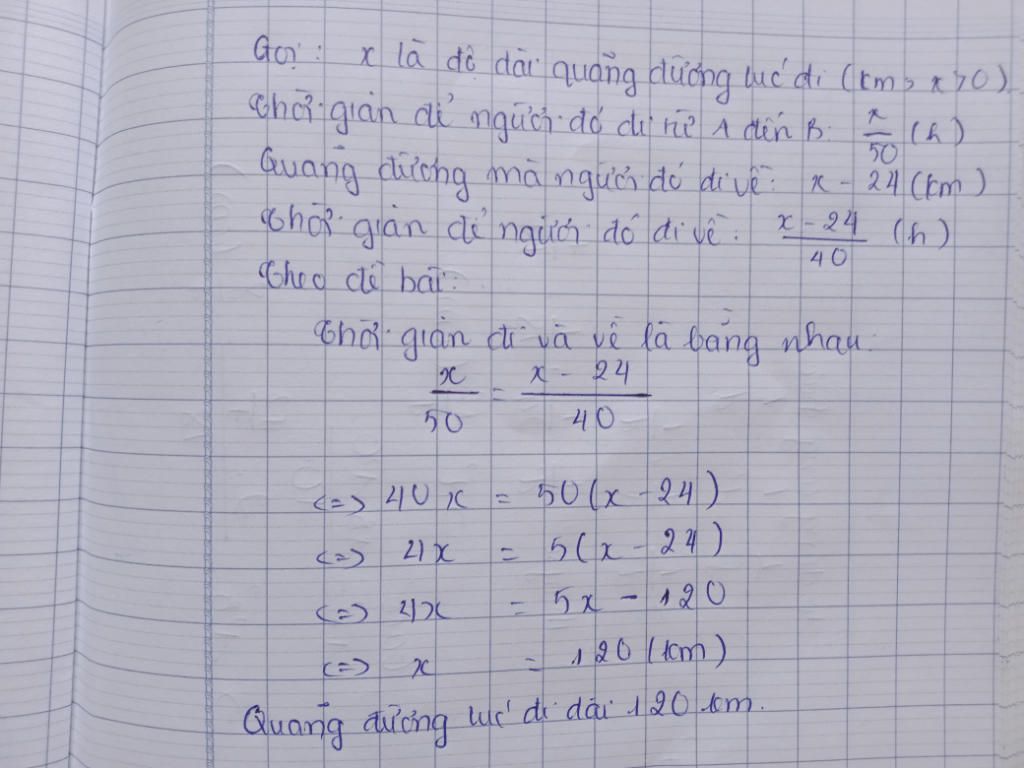 Gọi: x là độ dài quãng đường lúc đi (km, x > 0)
Thời gian để người đó đi từ A đến B: x/50 (h)
Quãng đường mà người đó đi về: x - 24 (km)
Thời gian để người đó đi về: (x - 24)/40 (h)
Theo đề bài:
Thời gian đi và về là bằng nhau.
x/50 = (x - 24)/40
<=> 40x = 50(x - 24)
<=> 4x = 5(x - 24)
<=> 4x = 5x - 120
<=> x = 120 (km)
Quãng đường lúc đi dài 120 km.